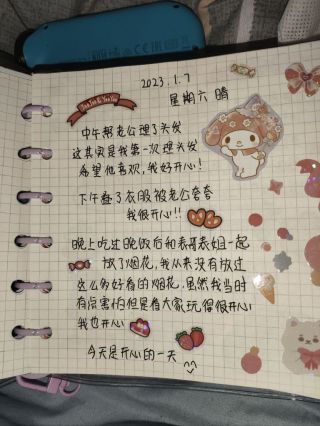 2023.1.7
星期六 晴
中午帮老公理了头发
这其实是我第一次理头发
希望他喜欢,我好开心!
下午叠了衣服被老公夸夸
我很开心!!
晚上吃过晚饭后和表哥表姐一起
放了烟花,我从来没有放过
这么多好看的烟花,虽然我当时
有点害怕但是看大家玩得很开心
我也开心
今天是开心的一天